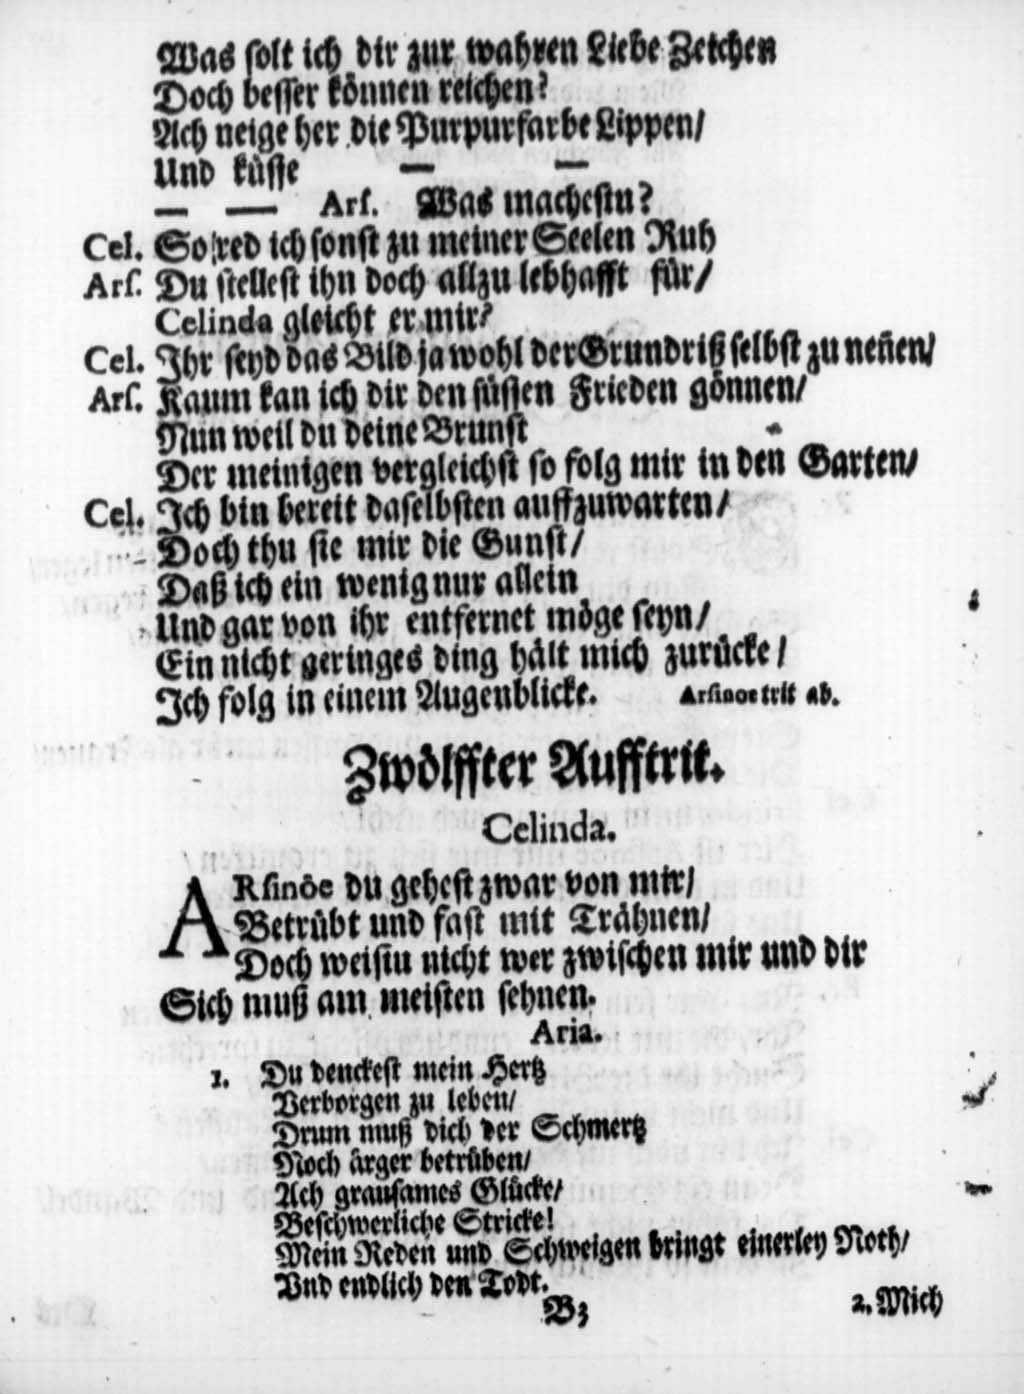 Was solt ich dir zur wahren Liebe Zeichen
Doch besser können reichen?
Ach neige her die Purpurfarbe Lippen/
Und küsse — —
— — Ars. Was machestu?
Cel. So red ich sonst zu meiner Seelen Ruh
Ars. Du stellest ihn doch allzu lebhafft für/
Celinda gleicht er mir?
Cel. Jhr seyd das Bild ja wohl der Grundriß selbst zu neñen/
Ars. Kaum kan ich dir den süssen Frieden gönnen/
Nun weil du deine Brunst
Der meinigen vergleichst so folg mir in den Garten/
Cel. Jch bin bereit daselbsten auffzuwarten/
Doch thu sie mir die Gunst/
Daß ich ein wenig nur allein
Und gar von ihr entfernet möge seyn/
Ein nicht geringes ding hält mich zurücke/
Jch folg in einem Augenblicke. Arsinoe trit ab.
Zwölffter Aufftrit.
Celinda.
ARsinöe du gehest zwar von mir/
Betrübt und fast mit Trähnen/
Doch weistu nicht wer zwischen mir und dir
Sich muß am meisten sehnen.
Aria.
1. Du denckest mein Hertz
Verborgen zu leben/
Drum muß dich der Schmertz
Noch ärger betrüben/
Ach grausames Glücke/
Beschwerliche Stricke!
Mein Reden und Schweigen bringt einerley Noth/
Vnd endlich den Todt.
B3 2. Mich